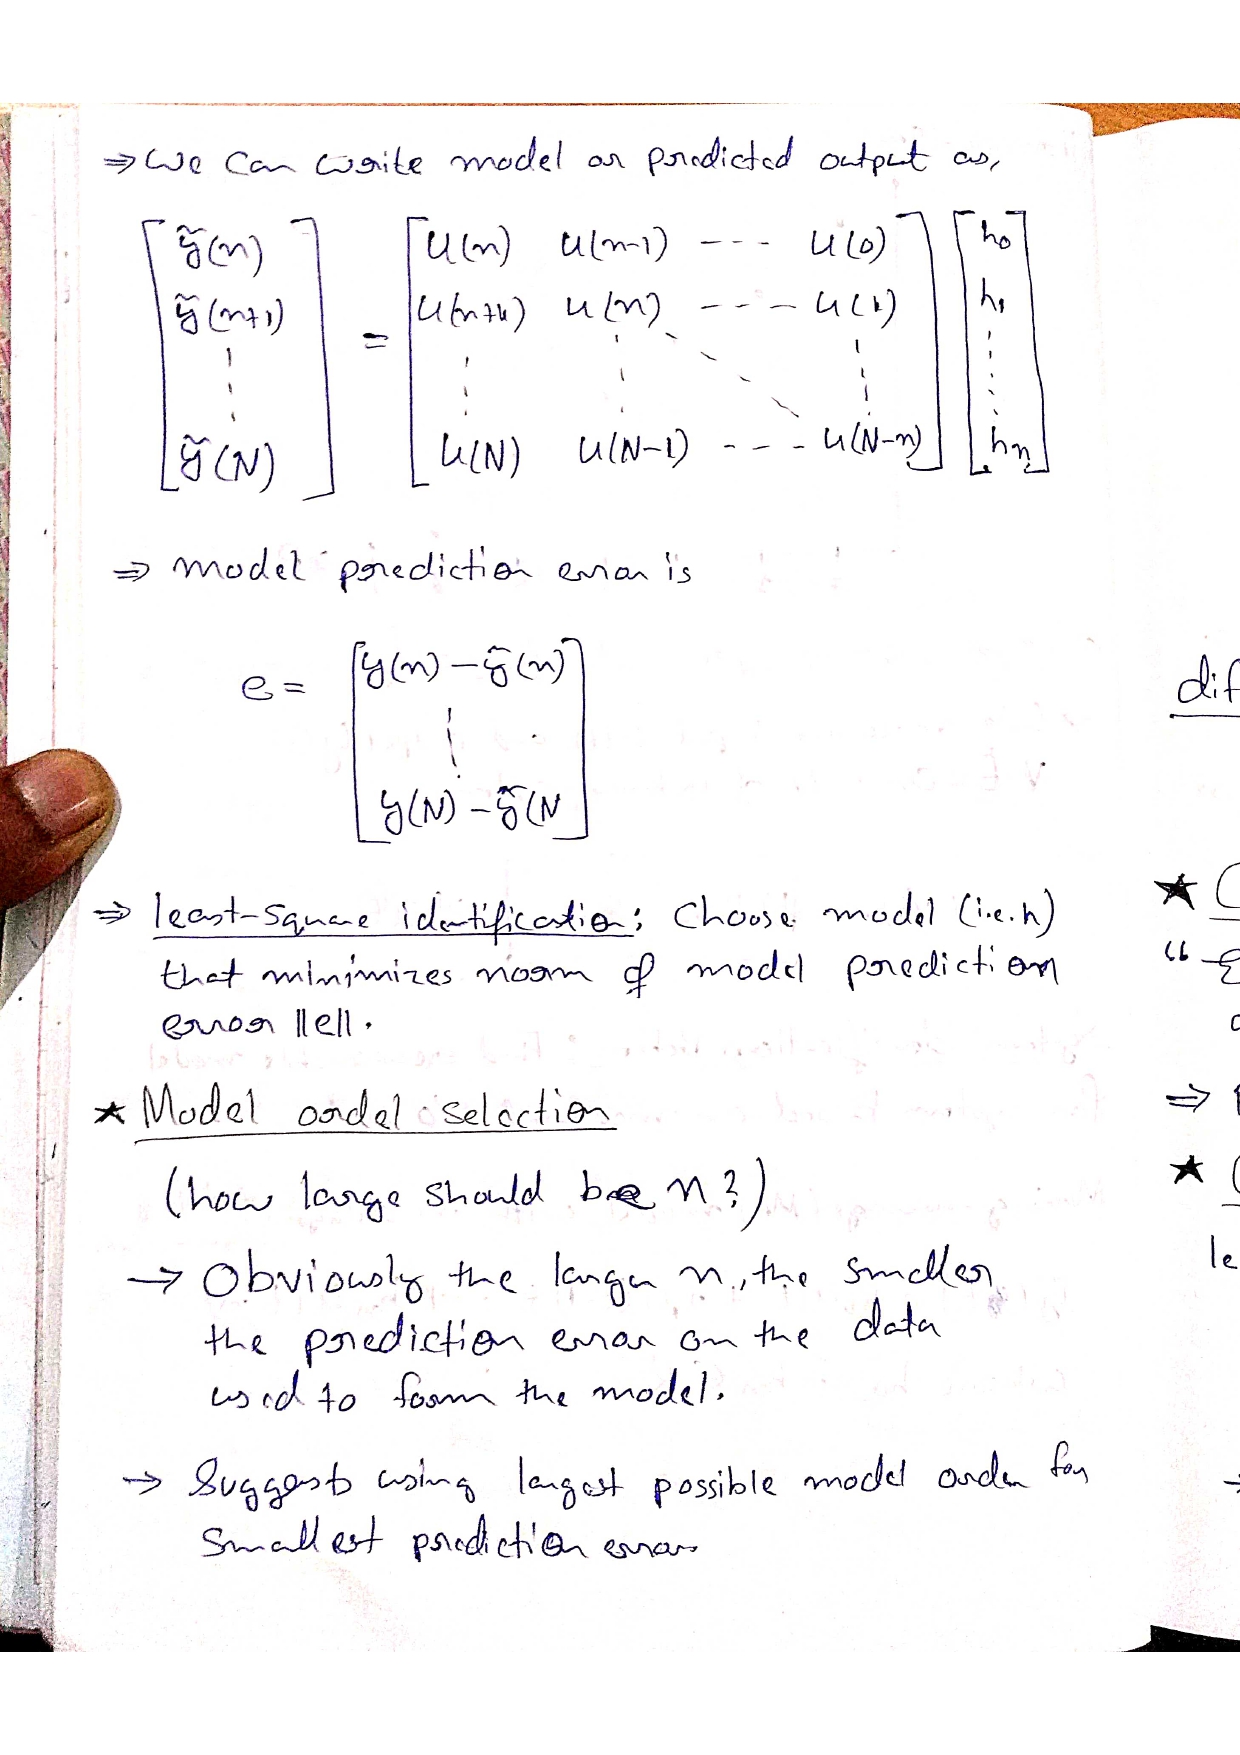 ⇒ We can write model or predicted output as,
[ỹ(n) ỹ(n+1) ⋮ ỹ(N)] = [u(n) u(n-1) --- u(0)
u(n+1) u(n) --- u(1)
⋮ ⋮ ⋱ ⋮
u(N) u(N-1) --- u(N-n)] [h₀ h₁ ⋮ hₙ]
⇒ model prediction error is
e = [y(n) - ỹ(n)
⋮
y(N) - ỹ(N]
⇒ least-square identification: Choose model (i.e. h)
that minimizes norm of model prediction
error ||e||.
★ Model ordel selection
(how large should be n?)
→ Obviously the larger n, the smaller
the prediction error on the data
used to form the model.
→ Suggests using largest possible model order for
smallest prediction error
dif
★
“
⇒
★
le